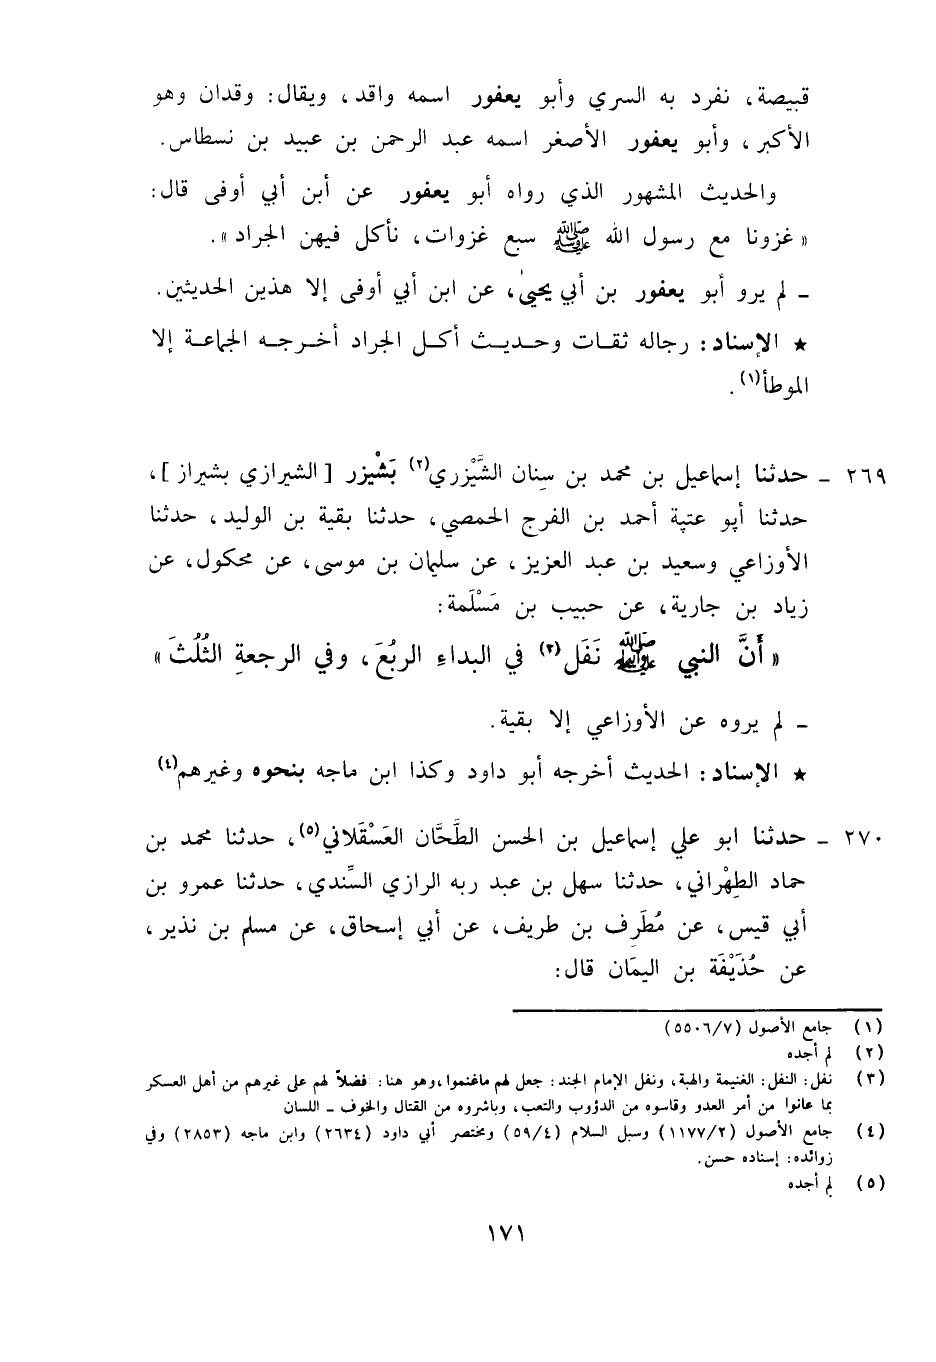 قبيصة، نفرد به السري وأبو يعفور اسمه واقد، ويقال: وقدان وهو
الأكبر، وأبو يعفور الأصغر اسمه عبد الرحمن بن عبيد بن نسطاس.
والحديث المشهور الذي رواه أبو يعفور عن أبن أبي أوفى قال:
«غزونا مع رسول الله ﷺ سبع غزوات، نأكل فيهن الجراد».
ـ لم يرو أبو يعفور بن أبي يحيىٰ، عن ابن أبي أوفى إلا هذين الحديثين.
★ الإسناد: رجاله ثقات وحديث أكل الجراد أخرجه الجماعة إلا
الموطأ(١).
٢٦٩ ـ حدثنا إسماعيل بن محمد بن سِنان الشَّيْزري(٢) بَشْيزر [الشيرازي بشيراز]،
حدثنا أبو عتبة أحمد بن الفرج الحمصي، حدثنا بقية بن الوليد، حدثنا
الأوزاعي وسعيد بن عبد العزيز، عن سليمان بن موسى، عن محكول، عن
زياد بن جارية، عن حبيب بن مَسْلَمة:
«أَنَّ النبي ﷺ نَفَل(٣) في البداءِ الربُعَ، وفي الرجعةِ الثُلُثَ»
ـ لم يروه عن الأوزاعي إلا بقية.
★ الإسناد: الحديث أخرجه أبو داود وكذا ابن ماجه بنحوه وغيرهم(٤)
٢٧٠ ـ حدثنا ابو علي إسماعيل بن الحسن الطَّحَّان العَسْقَلاني(٥)، حدثنا محمد بن
حماد الطِهْراني، حدثنا سهل بن عبد ربه الرازي السِّندي، حدثنا عمرو بن
أبي قيس، عن مُطَرِف بن طريف، عن أبي إسحاق، عن مسلم بن نذير،
عن حُذَيْفَة بن اليمَان قال:
(١) جامع الأصول (٥٥٠٦/٧)
(٢) لم أجده
(٣) نفل: النفل: الغنيمة والهبة، ونفل الإمام الجند: جعل لهم ماغنموا، وهو هنا: فضلاً لهم على غيرهم من أهل العسكر
بما عانوا من أمر العدو وقاسوه من الدؤوب والتعب، وباشروه من القتال والخوف ـ اللسان
(٤) جامع الأصول (١١٧٧/٢) وسبل السلام (٥٩/٤) ومختصر أبي داود (٢٦٣٤) وابن ماجه (٢٨٥٣) وفي
زوائده: إسناده حسن.
(٥) لم أجده
١٧١